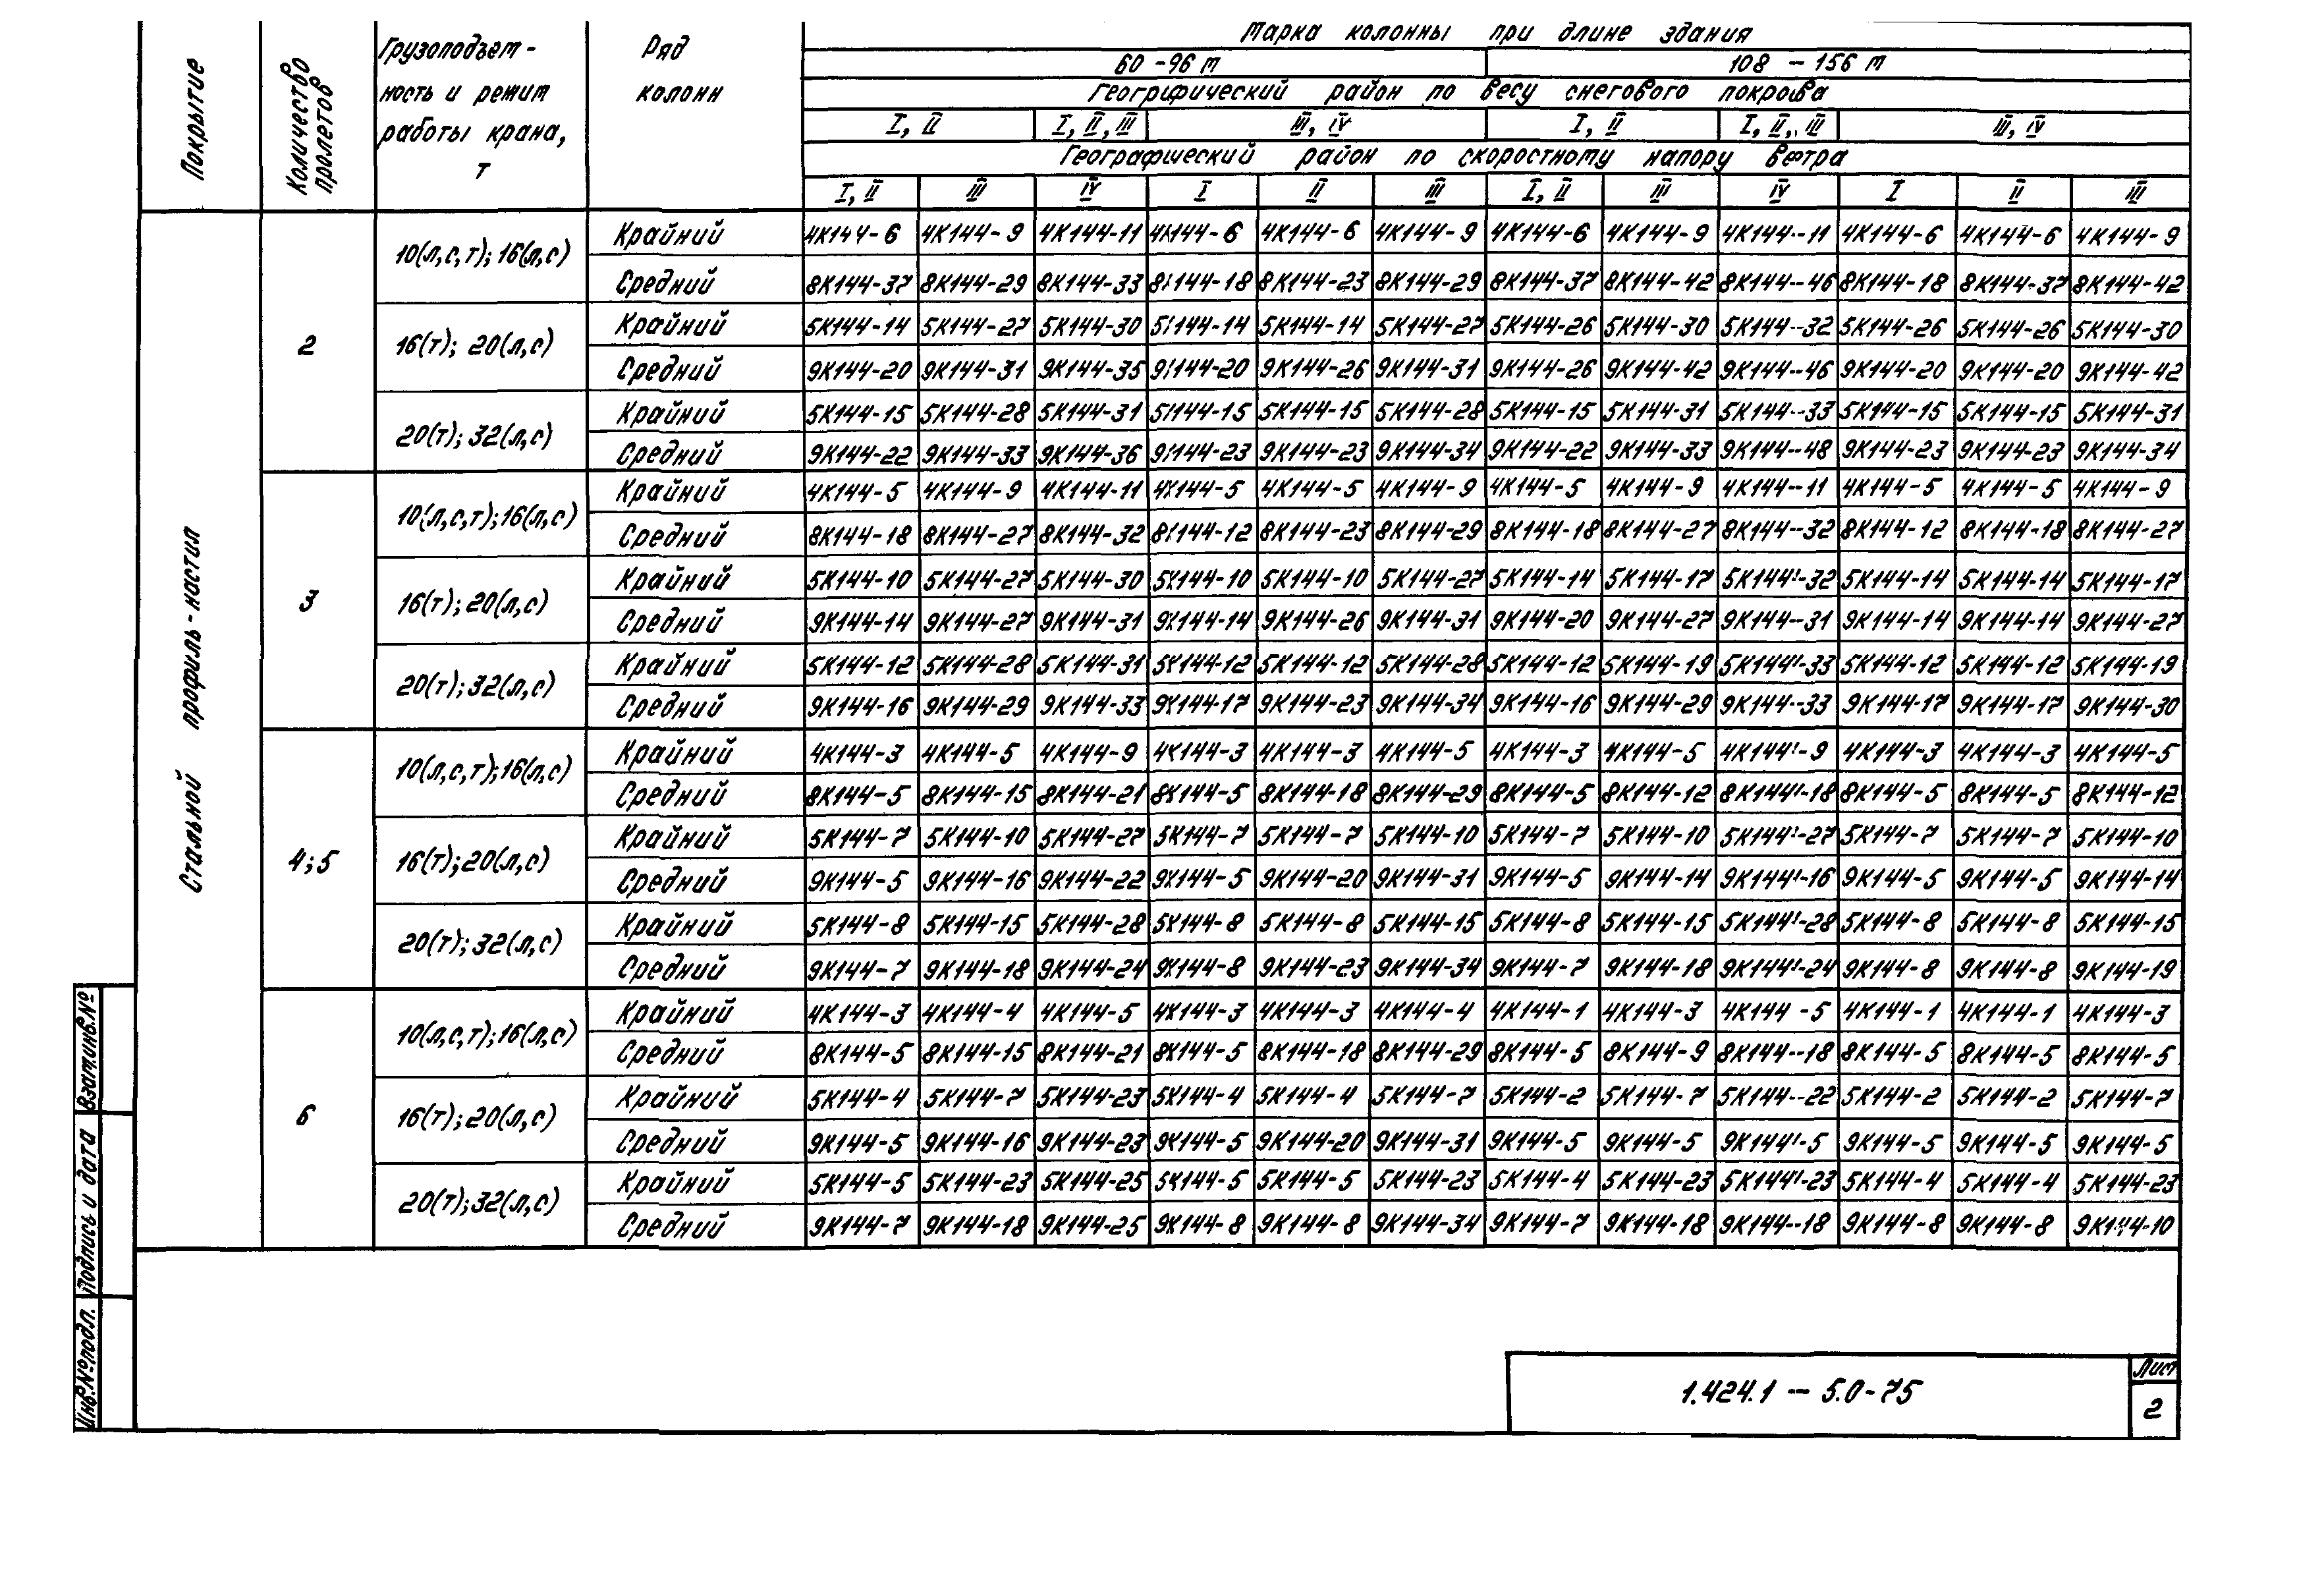 Покрытие
Количество пролетов
Грузоподъем-
ность и режим
работы крана,
т
Ряд
колонн
Марка колонны при длине здания
60 - 96 м 108 - 156 м
Географический район по весу снегового покрова
I, II I, II, III III, IV I, II I, II, III III, IV
Географический район по скоростному напору ветра
I, II III IV I II III I, II III IV I II III
Стальной профиль-настил
2
10(л,с,т); 16(л,с)
Крайний 4К144-6 4К144-9 4К144-11 4К144-6 4К144-6 4К144-9 4К144-6 4К144-9 4К144-11 4К144-6 4К144-6 4К144-9
Средний 8К144-37 8К144-29 8К144-33 8К144-18 8К144-23 8К144-29 8К144-37 8К144-42 8К144-46 8К144-18 8К144-37 8К144-42
16(т); 20(л,с)
Крайний 5К144-14 5К144-27 5К144-30 5К144-14 5К144-14 5К144-27 5К144-26 5К144-30 5К144-32 5К144-26 5К144-26 5К144-30
Средний 9К144-20 9К144-31 9К144-35 9К144-20 9К144-26 9К144-31 9К144-26 9К144-42 9К144-46 9К144-20 9К144-20 9К144-42
20(т); 32(л,с)
Крайний 5К144-15 5К144-28 5К144-31 5К144-15 5К144-15 5К144-28 5К144-15 5К144-31 5К144-33 5К144-15 5К144-15 5К144-31
Средний 9К144-22 9К144-33 9К144-36 9К144-23 9К144-23 9К144-34 9К144-22 9К144-33 9К144-48 9К144-23 9К144-23 9К144-34
3
10(л,с,т); 16(л,с)
Крайний 4К144-5 4К144-9 4К144-11 4К144-5 4К144-5 4К144-9 4К144-5 4К144-9 4К144-11 4К144-5 4К144-5 4К144-9
Средний 8К144-18 8К144-27 8К144-32 8К144-12 8К144-23 8К144-29 8К144-18 8К144-27 8К144-32 8К144-12 8К144-18 8К144-27
16(т); 20(л,с)
Крайний 5К144-10 5К144-27 5К144-30 5К144-10 5К144-10 5К144-27 5К144-14 5К144-17 5К144-32 5К144-14 5К144-14 5К144-17
Средний 9К144-14 9К144-27 9К144-31 9К144-14 9К144-26 9К144-31 9К144-20 9К144-27 9К144-31 9К144-14 9К144-14 9К144-27
20(т); 32(л,с)
Крайний 5К144-12 5К144-28 5К144-31 5К144-12 5К144-12 5К144-28 5К144-12 5К144-19 5К144-33 5К144-12 5К144-12 5К144-19
Средний 9К144-16 9К144-29 9К144-33 9К144-17 9К144-23 9К144-34 9К144-16 9К144-29 9К144-33 9К144-17 9К144-17 9К144-30
4; 5
10(л,с,т); 16(л,с)
Крайний 4К144-3 4К144-5 4К144-9 4К144-3 4К144-3 4К144-5 4К144-3 4К144-5 4К144-9 4К144-3 4К144-3 4К144-5
Средний 8К144-5 8К144-15 8К144-21 8К144-5 8К144-18 8К144-29 8К144-5 8К144-12 8К144-18 8К144-5 8К144-5 8К144-12
16(т); 20(л,с)
Крайний 5К144-7 5К144-10 5К144-27 5К144-7 5К144-7 5К144-10 5К144-7 5К144-10 5К144-27 5К144-7 5К144-7 5К144-10
Средний 9К144-5 9К144-16 9К144-22 9К144-5 9К144-20 9К144-31 9К144-5 9К144-14 9К144-16 9К144-5 9К144-5 9К144-14
20(т); 32(л,с)
Крайний 5К144-8 5К144-15 5К144-28 5К144-8 5К144-8 5К144-15 5К144-8 5К144-15 5К144-28 5К144-8 5К144-8 5К144-15
Средний 9К144-7 9К144-18 9К144-24 9К144-8 9К144-23 9К144-34 9К144-7 9К144-18 9К144-24 9К144-8 9К144-8 9К144-19
6
10(л,с,т); 16(л,с)
Крайний 4К144-3 4К144-4 4К144-5 4К144-3 4К144-3 4К144-4 4К144-1 4К144-3 4К144-5 4К144-1 4К144-1 4К144-3
Средний 8К144-5 8К144-15 8К144-21 8К144-5 8К144-18 8К144-29 8К144-5 8К144-9 8К144-18 8К144-5 8К144-5 8К144-5
16(т); 20(л,с)
Крайний 5К144-4 5К144-7 5К144-23 5К144-4 5К144-4 5К144-7 5К144-2 5К144-7 5К144-22 5К144-2 5К144-2 5К144-7
Средний 9К144-5 9К144-16 9К144-23 9К144-5 9К144-20 9К144-31 9К144-5 9К144-5 9К144-5 9К144-5 9К144-5 9К144-5
20(т); 32(л,с)
Крайний 5К144-5 5К144-23 5К144-25 5К144-5 5К144-5 5К144-23 5К144-4 5К144-23 5К144-23 5К144-4 5К144-4 5К144-23
Средний 9К144-7 9К144-18 9К144-25 9К144-8 9К144-8 9К144-34 9К144-7 9К144-18 9К144-18 9К144-8 9К144-8 9К144-10
Взам.инв.№
Подпись и дата
Инв.№подл.
1.424.1 - 5.0-75
Лист
2